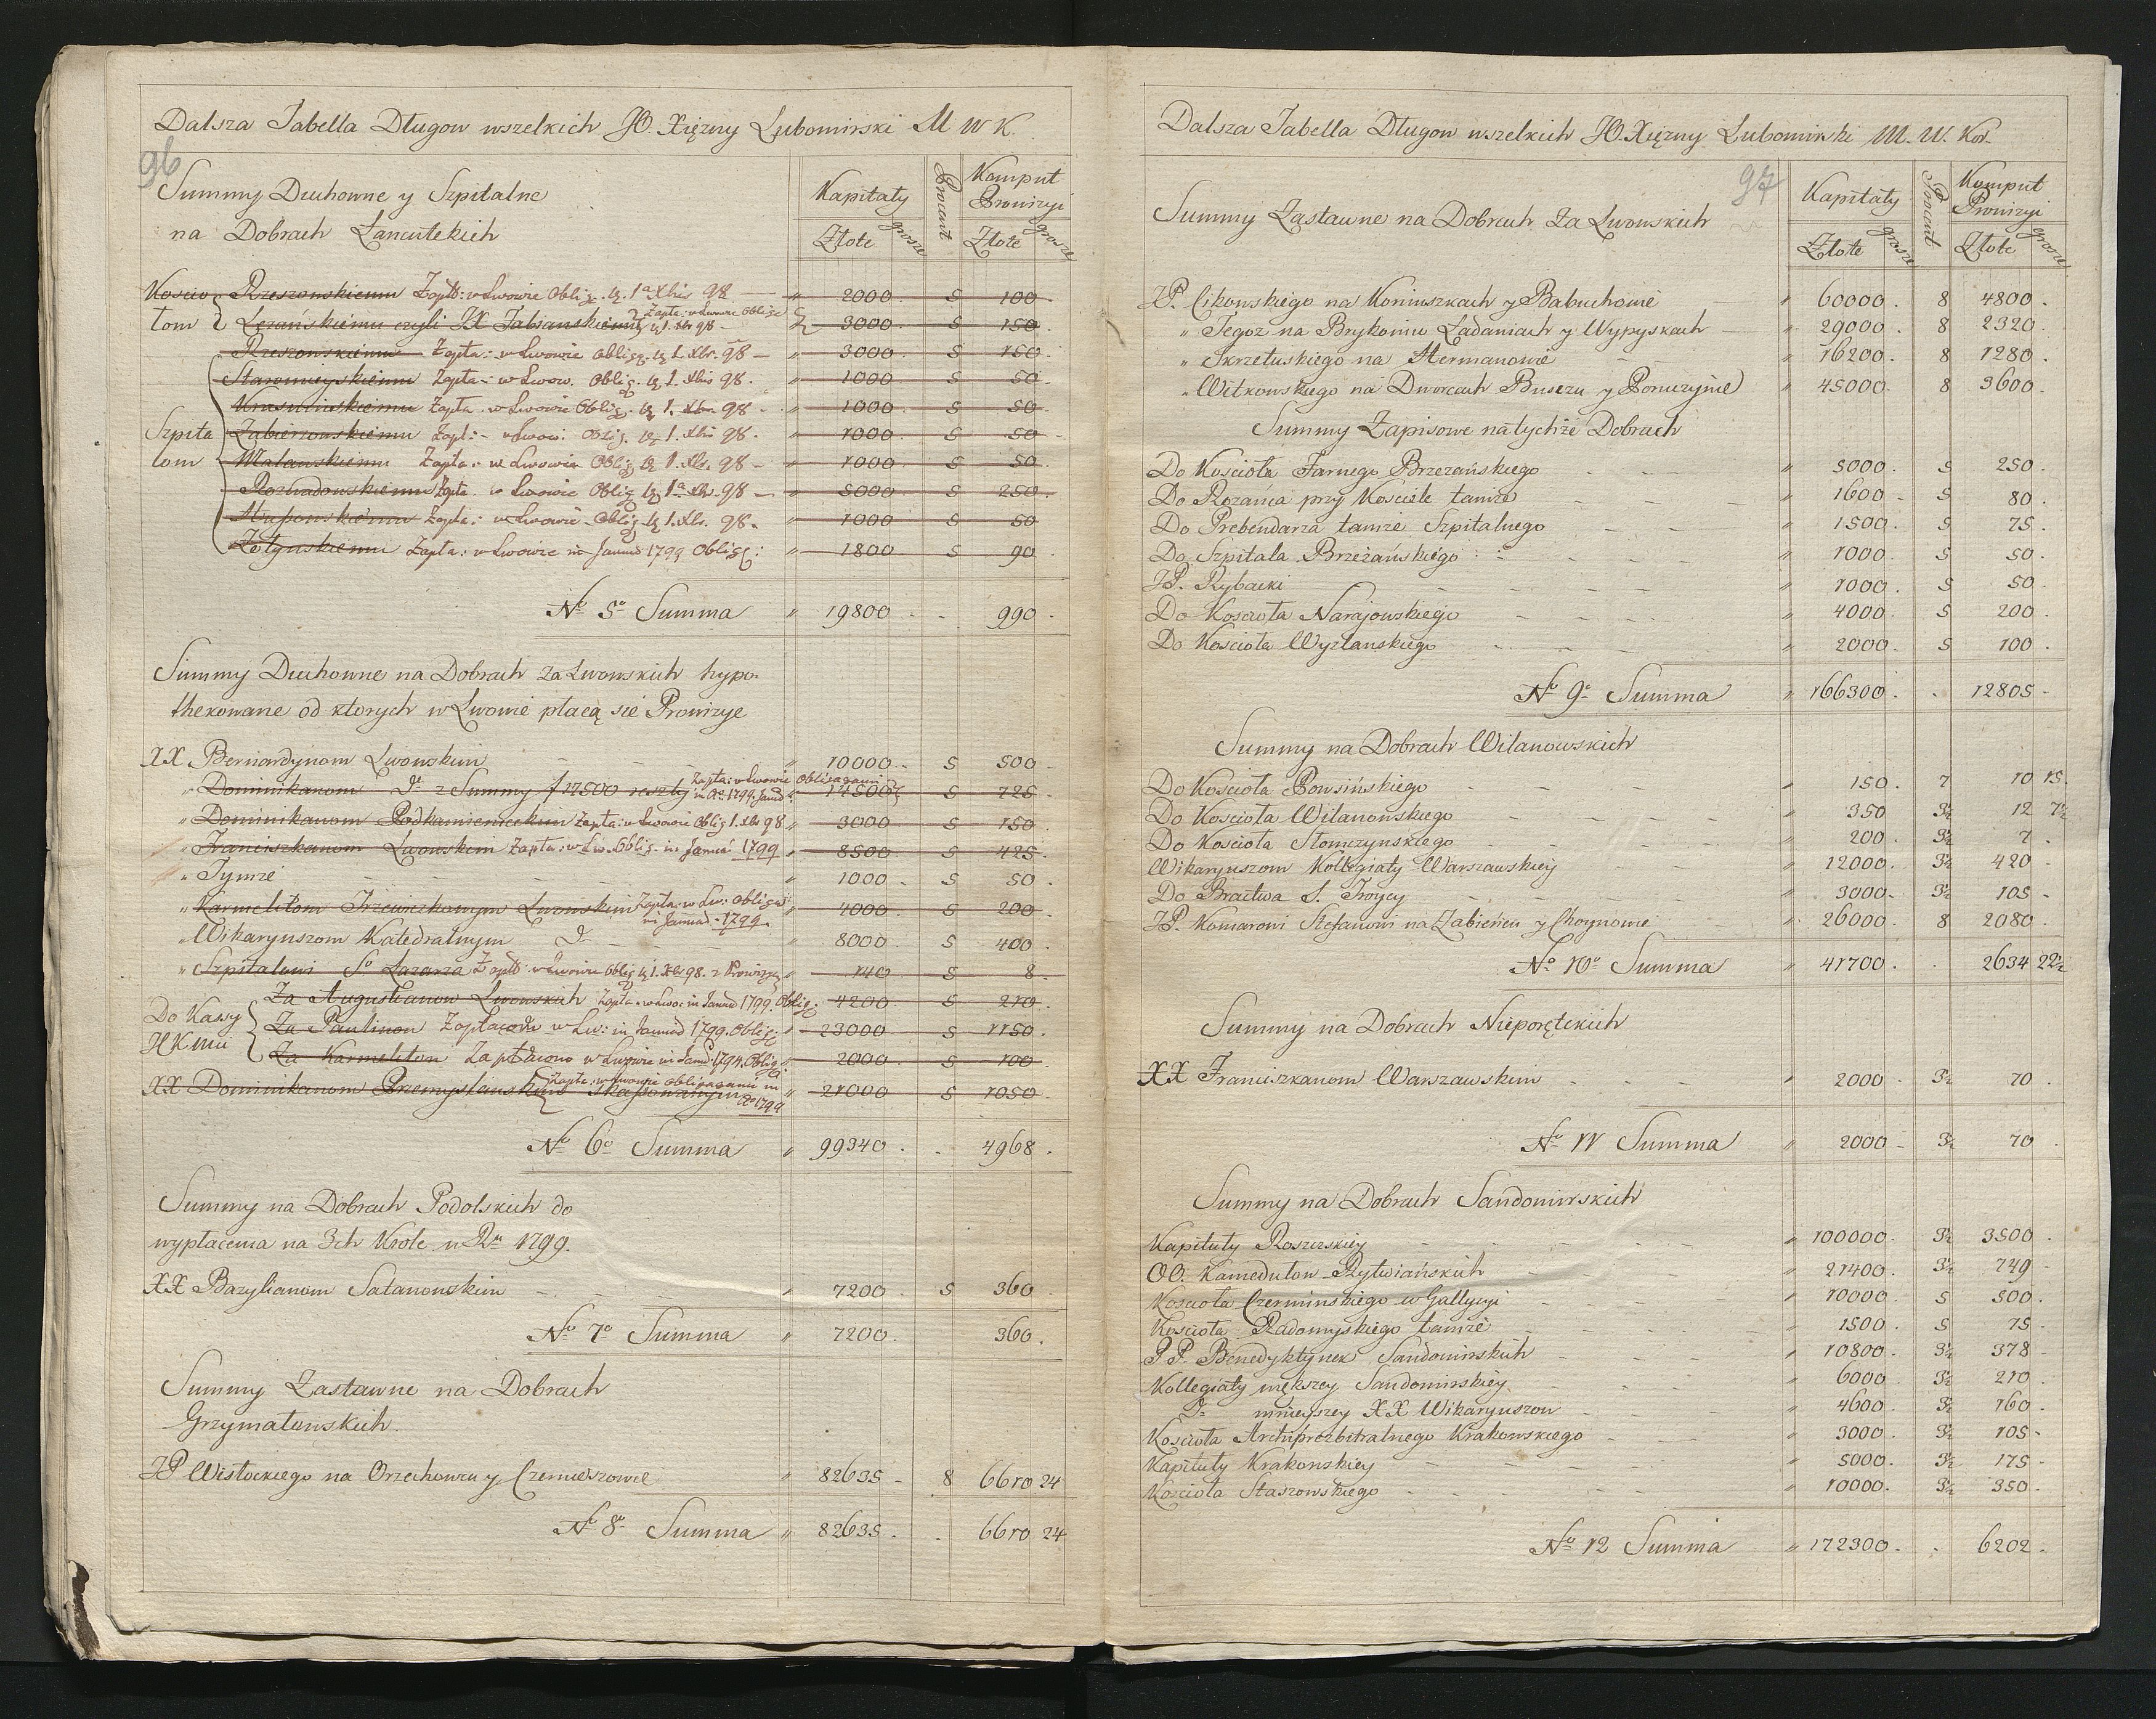 Dalsza Tabella Długow wszelkich JO. Xięzny Lubomirski M W K.
96
Summy Duchowne y Szpitalne
na Dobrach Lancutckich
Kapitały Procent Komput Prowizyi
Złote grosze Złote grosze
Koscio Rzeszowskiemu Zapło: w Lwowie Oblig. tz. 1ª Xbris 98 — " 2000 5 100
łom Lezańskiemu czyli JX Jabłanskiemu Zapła: w Lwowie oblige tz 1. Xbr 98 — 3000 5 150
Rzeszowskiemu Zapła: w Lwowie oblig. tz 1. Xbr. 98 — " 3000 5 150
Staromieyskiemu Zapła: w Lwow. oblig. tz. 1. Xbris 98. " 1000 5 50
Krasninskiemu Zapła: w Lwowie Oblig. tz 1. Xbr. 98 - " 1000 5 50
Szpita Zabierzowskiemu Zapł: - w Lwow: oblig. tz 1. Xbris 98. " 1000 5 50
lom Malawskiemu Zapła: w Lwowie Oblig tz 1. Xbr. 98 — " 1000 5 50
Rozwadowskiemu Zapła. w Lwowie Oblig tz 1ª Xbr. 98 — " 5000 5 250
Stupowskiemu Zapła: w Lwowie Oblig tz 1. Xbr. 98. " 1000 5 50
Zołynskiemu Zapła: w Lwowie in Januar 1799 Oblig: " 1800 5 90
No 5o Summa " 19800 - - 990.
Summy Duchowne na Dobrach za Lwowskich hypo-
thekowane od ktorych w Lwowie płacą sie Prowizye
XX Bernardynom Lwowskim " 10000 - 5 500 -
" Dominikanom Dt z Summy f 17500 reszty Zapła: w Lwowie obligacyami in Ao. 1799. Januar " 14500 5 725
" Dominikanom Podkamienieckim Zapła: w Lwowie Oblig 1. Xbr 98 " 3000 5 150
" Franciszkanom Lwowskim Zapła: w Lw. Oblig. in Januar 1799 " 8500 5 425
" Tymze " 1000 - 5 50.
" Karmelitom Trzewiczkowym Lwowskim Zapła: w Lw: oblig in Januar. 1799. " 4000 5 200
" Wikaryuszom Katedralnym Dt " 8000 5 400
" Szpitalowi So Lazarza Zapło w Lwowie Oblig tz 1. Xbr 98. z Prowizyą " 140 5 8
Za Augustianow Lwowskich Zapła: w Lwo: in Januar 1799. Oblig: 4200 5 210
Do Kassy Za Paulinow Zapłacono w Lw: in Januar 1799. Oblig: " 23000 5 1150.
Za Karmelitow Zapłacono w Lwowie in Janu: 1794. Oblig: " 2000 5 100
XX Dominikanom Przemyslanskim Skassowanym Zapła: w Lwowie obligacyami in Ao 1799 " 21000 5 1050
No 6o Summa " 99340. - 4968.
Summy na Dobrach Podolskich do
wypłacenia na 3ch Krole w Ru 1799.
XX Bazylianom Satanowskim " 7200 5 360
No 7o Summa " 7200. 360.
Summy Zastawne na Dobrach
Grzymałowskich.
JP Wisłockiego na Orzechowcu y Czerniszowce " 82635 - 8 6610 24
No 8o Summa " 82635. . 6610 24
Dalsza Tabella Długow wszelkich JO. Xięzny Lubomirski M. W. Kor.
97
Summy Zastawne na Dobrach Za Lwowskich
Kapitały Procent Komput Prowizyi
Złote grosze Złote grosze
JP. Cikowskiego na Koniuszkach y Babuchowie " 60000. 8 4800.
" Tegoz na Brykoniu Ładaniach y Wypyskach — " 29000. 8 2320.
" Skrzetuskiego na Hermanowie " 16200. 8 1280.
" Witkowskiego na Dworcach Buszcu y Pomuzynie " 45000. 8 3600.
Summy Zapisowe na tychże Dobrach
Do Kościoła Farnego Brzezańskiego " 5000. 5 250.
Do Rozańca przy Kościele tamże " 1600 - 5 80.
Do Prebendarza tamże Szpitalnego " 1500. 5 75.
Do Szpitala Brzeżańskiego " 1000. 5 50.
JP. Rybacki " 1000. 5 50.
Do Koscioła Narajowskiego " 4000. 5 200.
Do Kościoła Wyzlanskiego " 2000. 5 100.
No 9o Summa " 166300. . 12805 -
Summy na Dobrach Wilanowskich
Do Kościoła Powsińskiego " 150. 7 10 15.
Do Kościoła Wilanowskiego " 350 3½ 12 7½
Do Kościoła Słomczynskiego " 200. 3½ 7.
Wikaryuszom Kollegiaty Warszawskiey " 12000. 3½ 420 -
Do Bractwa S. Troycy " 3000 - 3½ 105 -
JP. Komarowi Stefanowi na Zabieńcu y Choynowie " 26000 8 2080.
No 10o Summa " 41700. . 2634 22½
Summy na Dobrach Nieporętckich
XX Franciszkanom Warszawskim " 2000 - 3½ 70.
No 11 Summa " 2000 - 3½ 70.
Summy na Dobrach Sandomirskich
Kapituły Roszrskiey " 100000. 3½ 3500.
OO. Kamedułow Rytwiańskich " 21400. 3½ 749 -
Kosciola Czerminskiego w Gallycyi " 10000. 5 500.
Kosciola Radomyskiego tamże " 1500. 5 75.
PP. Benedyktynek Sandomirskich " 10800. 3½ 378 -
Kollegiaty większey Sandomirskiey " 6000. 3½ 210.
Dt mnieyszey XX Wikaryuszow " 4600. 3½ 160.
Kosciola Archiprezbitralnego Krakowskiego " 3000. 3½ 105 -
Kapituły Krakowskiey " 5000. 3½ 175 -
Kosciola Staszowskiego " 10000. 3½ 350 -
No 12 Summa " 172300. . 6202 -